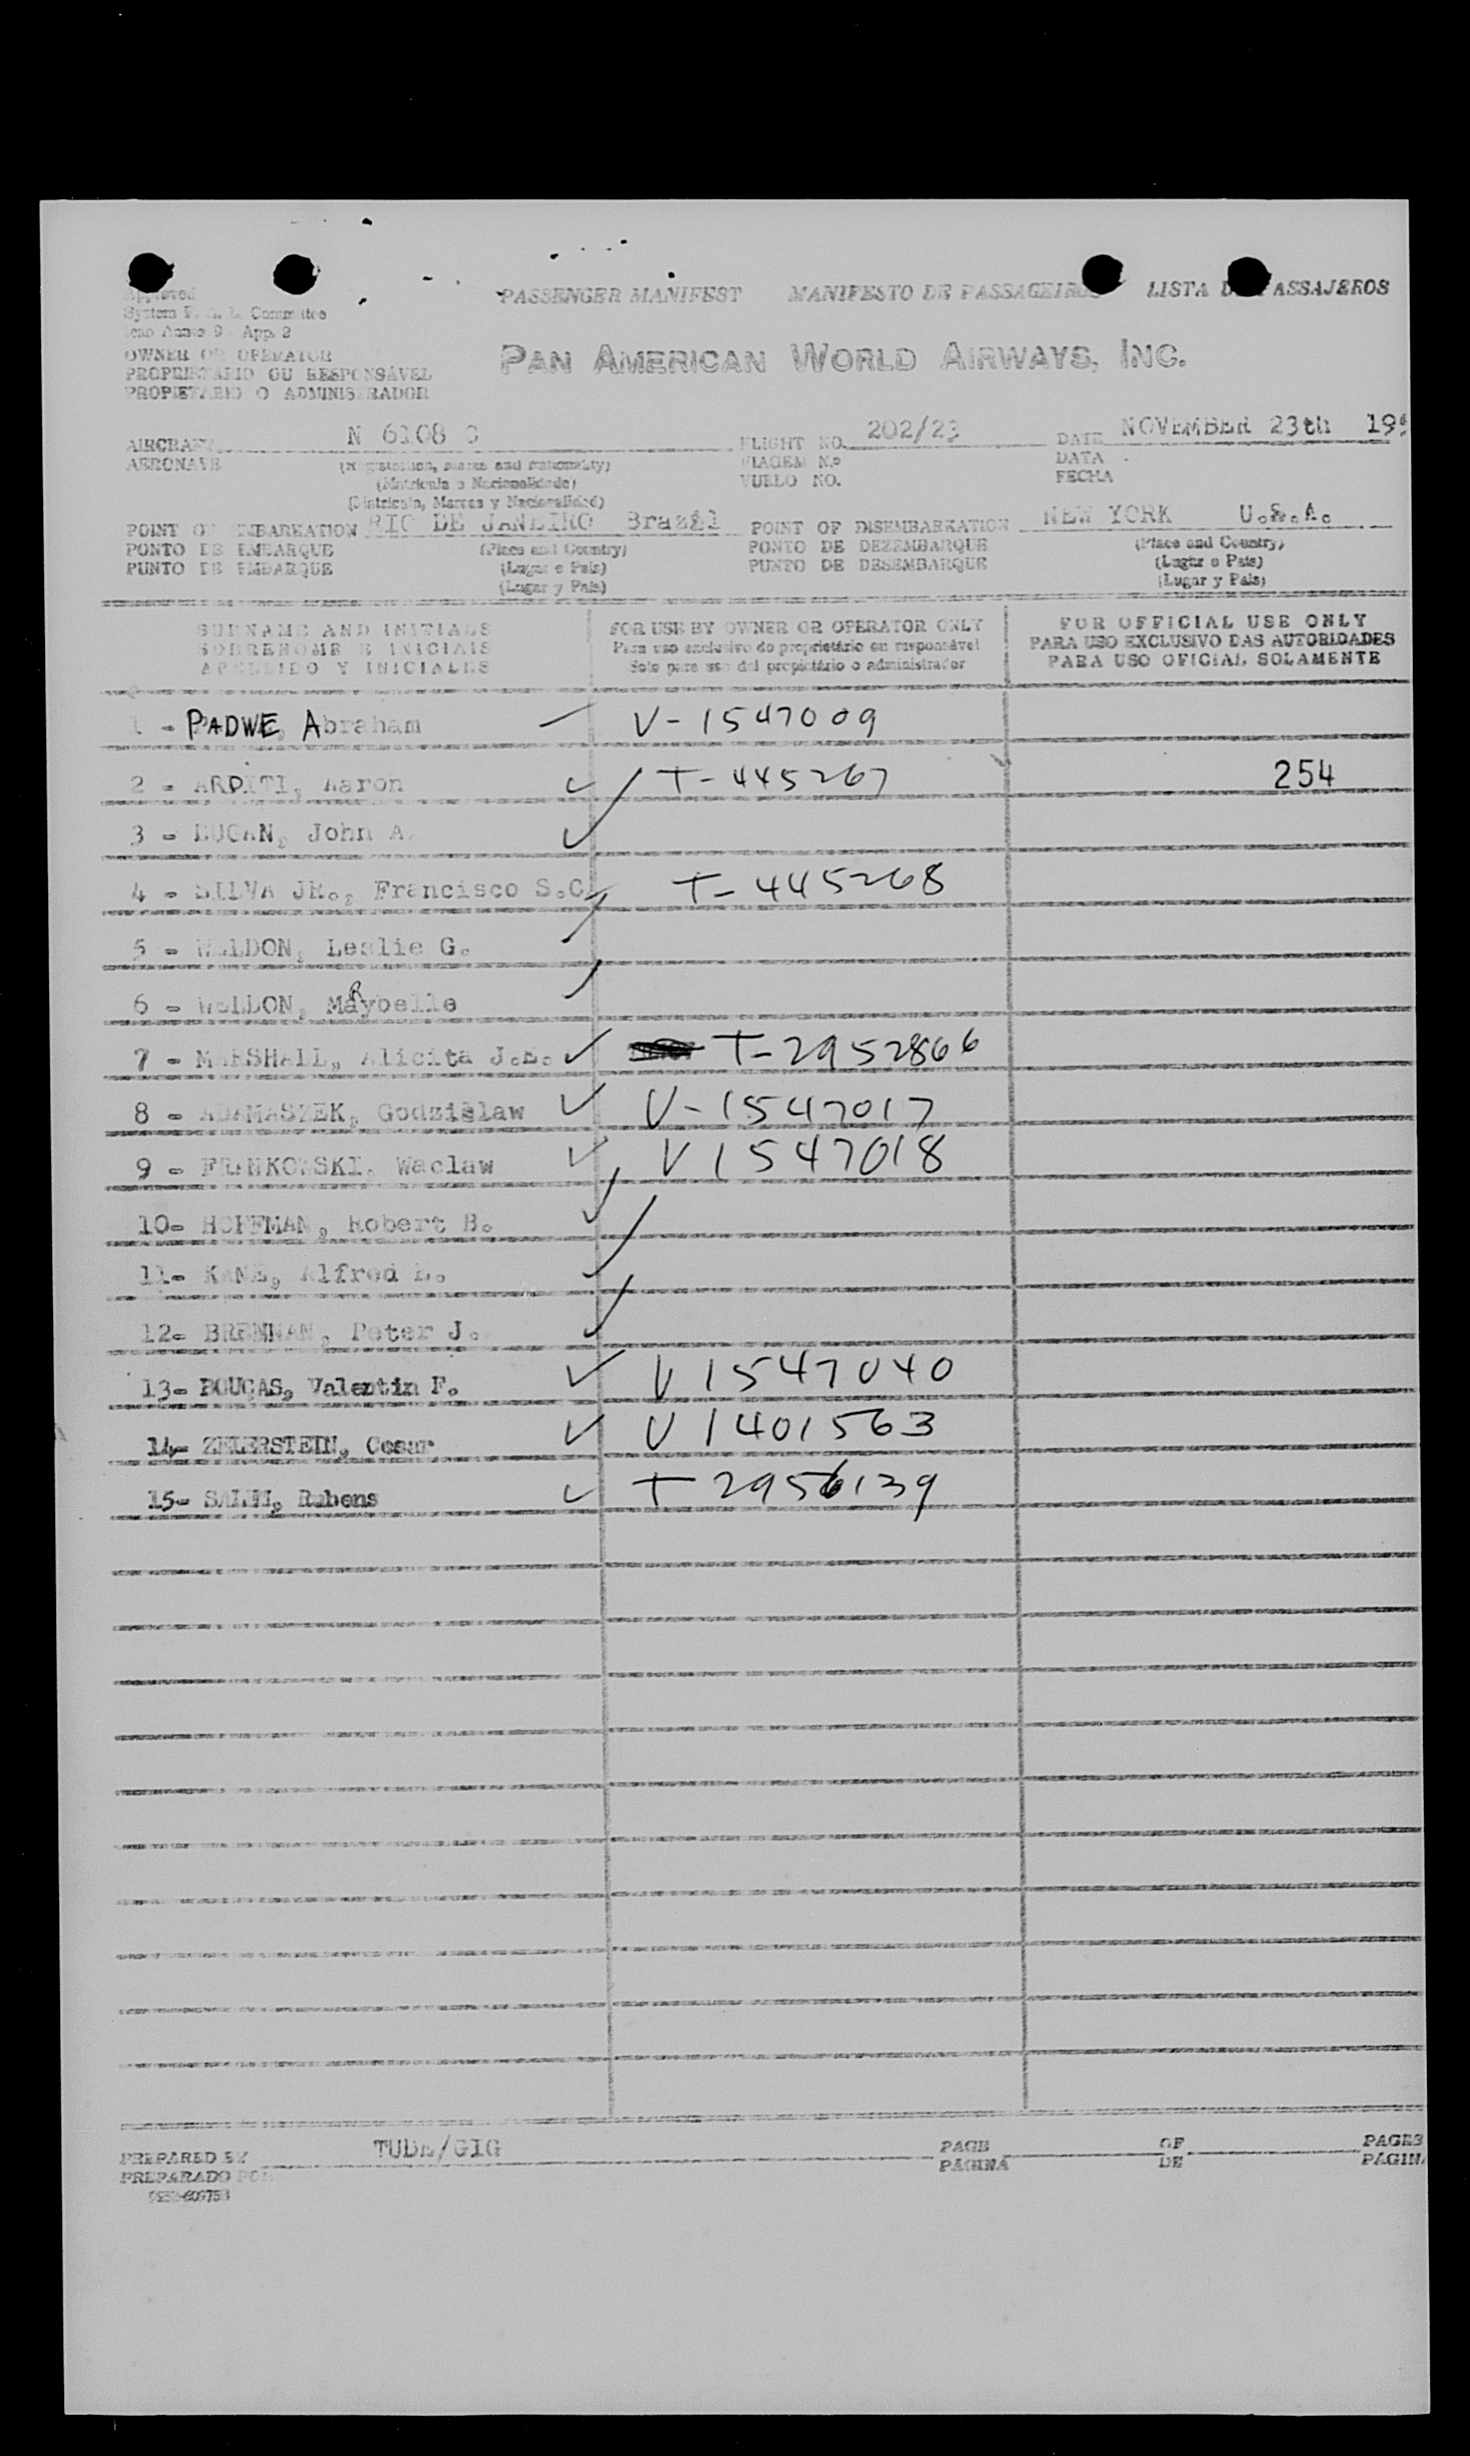 PASSENGER MANIFEST MANIFESTO DE PASSAGEIROS LISTA DE PASSAJEROS
Approved
System F. A. L. Committee
Icao Annex 9 - App. 2
OWNER OR OPERATOR
PROPRIETARIO OU RESPONSÁVEL
PROPIETARIO O ADMINISTRADOR
PAN AMERICAN WORLD AIRWAYS, INC.
AIRCRAFT N 6108 C FLIGHT NO. 202/23 DATE NOVEMBER 23th 195
AERONAVE (Registration, marks and nationality) VIAGEM N.º DATA
(Matricula e Nacionalidade) VUELO NO. FECHA
(Matricula, Marcas y Nacionalidad)
POINT OF EMBARKATION RIO DE JANEIRO Brazil POINT OF DISEMBARKATION NEW YORK U.S.A.
PONTO DE EMBARQUE (Place and Country) PONTO DE DEZEMBARQUE (Place and Country)
PUNTO DE EMBARQUE (Lugar e Pais) PUNTO DE DESEMBARQUE (Lugar e Pais)
(Lugar y Pais) (Lugar y Pais)
SURNAME AND INITIALS FOR USE BY OWNER OR OPERATOR ONLY FOR OFFICIAL USE ONLY
SOBRENOME E INICIAIS Para uso exclusivo do proprietário ou responsável PARA USO EXCLUSIVO DAS AUTORIDADES
APELLIDO Y INICIALES Solo para uso del propietário o administrador PARA USO OFICIAL SOLAMENTE
1 - PADWE, Abraham V-1547009
2 - ARDITI, Aaron T-445267 254
3 - DUGAN, John A.
4 - SILVA JR., Francisco S.C. T-445268
5 - WELDON, Leslie G.
6 - WELDON, MaRybelle
7 - MARSHALL, Alicita J.E. T-2952866
8 - ADAMASZEK, Godzislaw V-1547017
9 - FRANKOWSKI, Waclaw V1547018
10- HOFFMAN, Robert B.
11- KANE, Alfred E.
12- BRENNAN, Peter J.
13- BOUCAS, Valentin F. V1547040
14- ZELERSTEIN, Cesar V1401563
15- SALEH, Rubens T2956139
PREPARED BY TUDE/GIG PAGE OF PAGES
PREPARADO POR PAGINA DE PAGINA